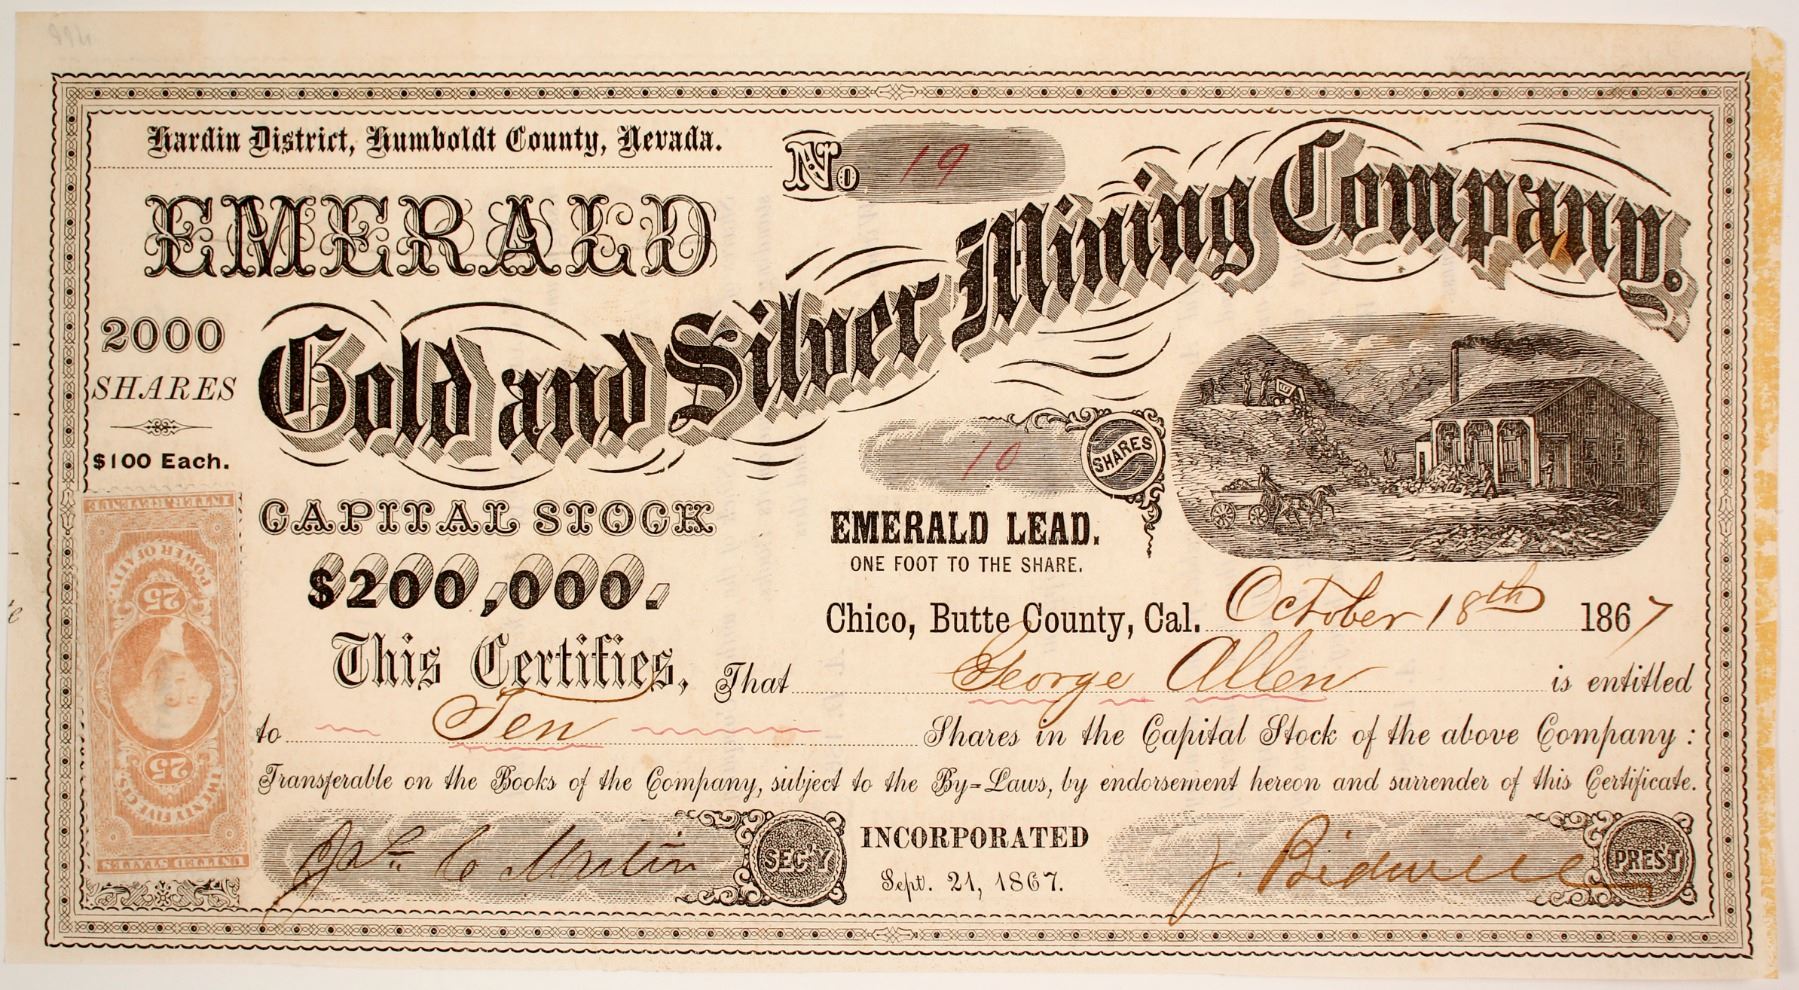 Hardin District, Humboldt County, Nevada.
No 19
EMERALD
Gold and Silver Mining Company.
2000
SHARES
$100 Each.
10 SHARES
CAPITAL STOCK
$200,000.
EMERALD LEAD.
ONE FOOT TO THE SHARE.
Chico, Butte County, Cal. October 18th 1867
This Certifies, That George Allen is entitled
to Ten Shares in the Capital Stock of the above Company:
Transferable on the Books of the Company, subject to the By-Laws, by endorsement hereon and surrender of this Certificate.
SEC'Y
INCORPORATED
Sept. 21, 1867.
J. Bidwell PRES'T
INTER. REVENUE
POWER OF ATT'Y.
25
25
TWENTY FIVE CTS.
UNITED STATES